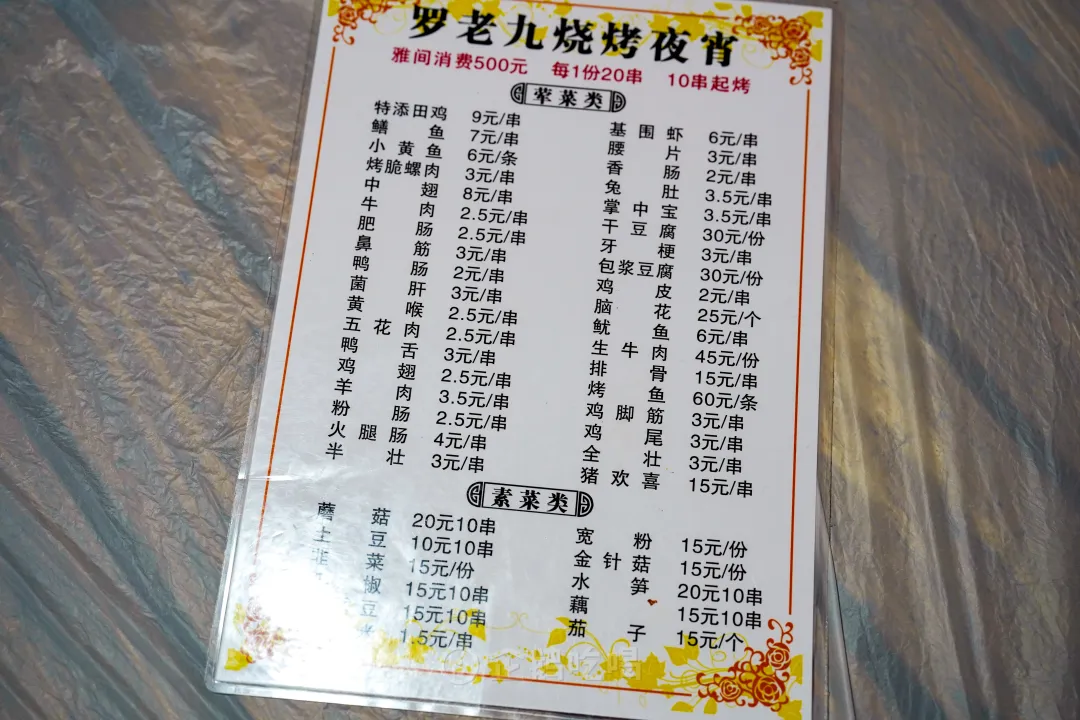 罗老九烧烤夜宵
雅间消费500元 每1份20串 10串起烤
荤菜类
特添田鸡 9元/串
鳝鱼 7元/串
小黄鱼 6元/条
烤脆螺肉 3元/串
中翅 8元/串
牛肉 2.5元/串
肥肠 2.5元/串
鼻筋 3元/串
鸭肠 2元/串
菌肝 3元/串
黄喉 2.5元/串
五花肉 2.5元/串
鸭舌 3元/串
鸡翅 2.5元/串
羊肉 3.5元/串
粉肠 2.5元/串
火腿肠 4元/串
半壮 3元/串
基围虾 6元/串
腰片 3元/串
香肠 2元/串
兔肚 3.5元/串
掌中宝 3.5元/串
干豆腐 30元/份
牙梗 3元/串
包浆豆腐 30元/份
鸡皮 2元/串
脑花 25元/个
鱿鱼 6元/串
生牛肉 45元/份
排骨 15元/串
烤鱼 60元/条
鸡脚筋 3元/串
鸡尾 3元/串
全壮 3元/串
猪欢喜 15元/串
素菜类
蘑菇 20元10串
土豆 10元10串
韭菜 15元/份
椒 15元10串
豆 15元10串
1.5元/串
宽粉 15元/份
金针菇 15元/份
水笋 20元10串
藕 15元10串
茄子 15元/个